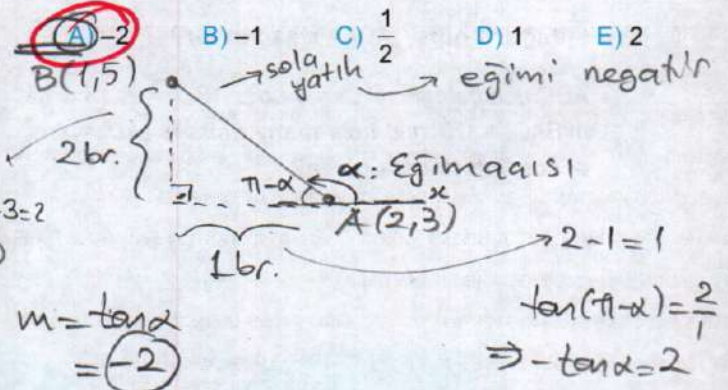 A) -2 B) -1 C) 1/2 D) 1 E) 2
B(1,5)
sola yatık
eğimi negatif
2br.
π-α
α: Eğim açısı
x
A(2,3)
3=2
1br.
2-1=1
m = tanα
= -2
tan(π-α) = 2/1
⇒ -tanα = 2